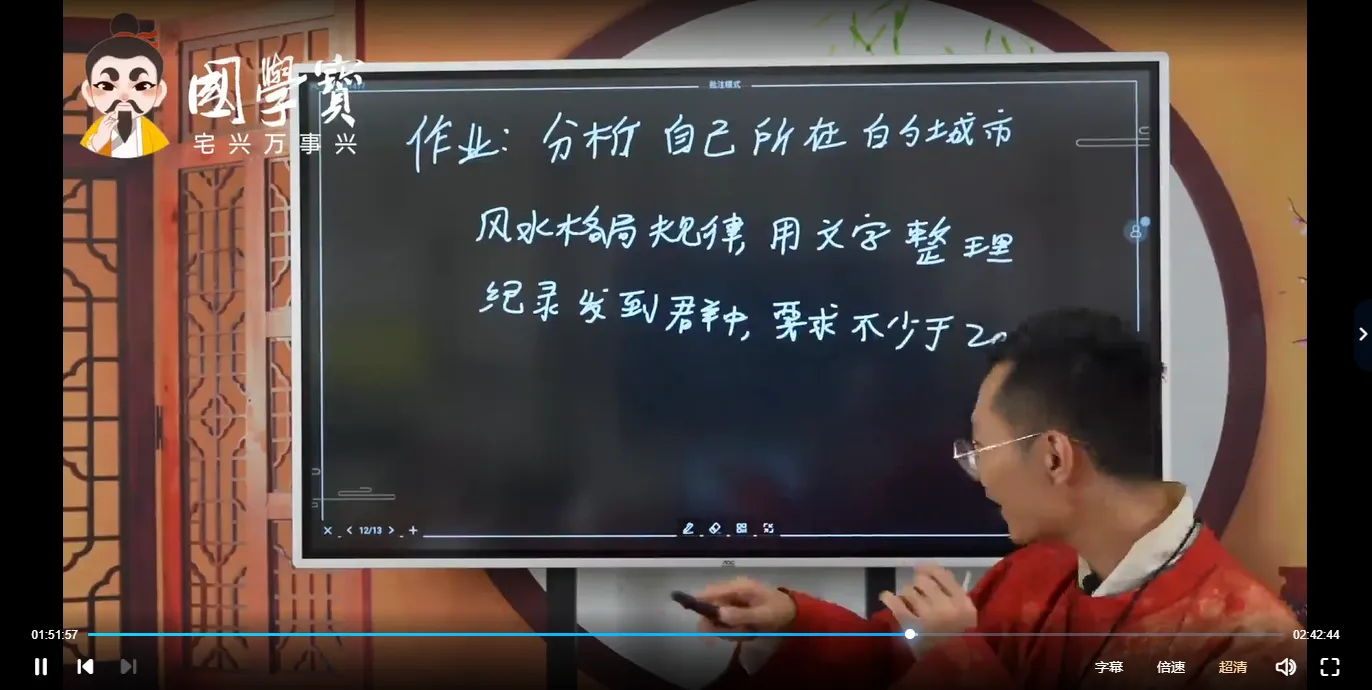 國學寶
宅兴万事兴
批注模式
作业：分析自己所在的城市
风水格局规律，用文字整理
纪录发到群中，要求不少于20
12/13
AOC
01:51:57
02:42:44
字幕
倍速
超清